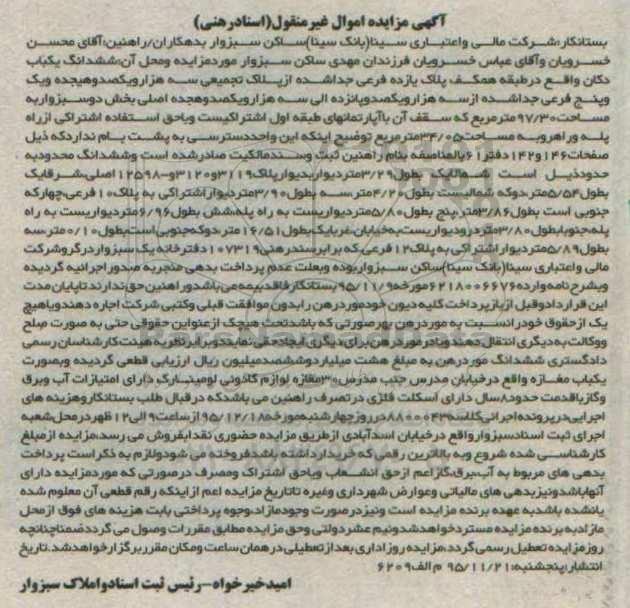 آگهی مزایده اموال غیرمنقول(اسنادرهنی)
بستانکار:شرکت مالی واعتباری سینا(بانک سینا)ساکن سبزوار بدهکاران/راهنین:آقای محسن
خسرویان وآقای عباس خسرویان فرزندان مهدی ساکن سبزوار موردمزایده ومحل آن:ششدانگ یکباب
دکان واقع درطبقه همکف پلاک یازده فرعی جداشده ازپلاک تجمیعی سه هزارویکصدوهیجده ویک
وپنج فرعی جداشده ازسه هزارویکصدوپانزده الی سه هزارویکصدوهجده اصلی بخش دوسبزواربه
مساحت۹۷/۳۰مترمربع که سقف آن باآپارتمانهای طبقه اول اشتراکیست وباحق استفاده اشتراکی ازراه
پله وراهروبه مساحت۳۴/۰۵مترمربع توضیح اینکه این واحددسترسی به پشت بام نداردکه ذیل
صفحات۱۴۶و۱۴۲دفتر۶۱بالمناصفه بنام راهنین ثبت وسندمالکیت صادرشده است وششدانگ محدودبه
حدودذیل است شمالابیک بطول۳/۲۹متردیواربدیوارپلاک۳۱۱۹و۳۱۲۰و۱۲۵۹۸اصلی،شرقابیک
بطول۵/۵۴متر،دوکه شمالیست بطول۴/۲۰متر،سه بطول۳/۹۰متردیواراشتراکی به پلاک۱۰فرعی،چهارکه
جنوبی است بطول۳/۸۶متر،پنج بطول۵/۸۰متردیواریست به راه پله،شش بطول۶/۹۶متردیواریست به راه
پله،جنوبابطول۳/۸۰متردرودیواریست‌به‌خیابان،غربابیک‌بطول۱۶/۵۱متر،دوکه‌جنوبی‌است‌بطول۰/۱۰متر،سه
بطول۵/۸۹متردیواراشتراکی به پلاک۱۲فرعی،که برابرسندرهنی۱۰۷۳۱۹دفترخانه یک سبزواردرگروشرکت
مالی واعتباری سینا(بانک سینا)ساکن سبزواربوده وبعلت عدم پرداخت بدهی منجربه صدوراجرائیه گردیده
وبشرح‌نامه‌وارده۶۲۱۸۰۰۶۶۷۶مورخه۹۵/۱۱/۹بستانکارفاقدبیمه‌می‌باشدوراهنین‌حق‌ندارندتاپایان‌مدت
این قراردادوقبل ازبازپرداخت کلیه‌دیون خودموردرهن رابدون موافقت قبلی وکتبی شرکت اجاره دهندویاهیچ
یک ازحقوق خودرانسبت به موردرهن بهرصورتی که باشدتحت هیچک ازعناوین حقوقی حتی به صورت صلح
ووکالت‌به‌دیگری انتقال‌دهندویادرموردرهن‌برای‌دیگری ایجادحقی‌نمایندوبرابرنظریه هیئت‌کارشناسان رسمی
دادگستری ششدانگ موردرهن به مبلغ هشت میلیاردوششصدمیلیون ریال ارزیابی قطعی گردیده وبصورت
یکباب مغازه واقع درخیابان مدرس جنب مدرس۳۰مغازه لوازم گازوئی لومینارک، دارای امتیازات آب وبرق
وگازباقدمت حدود۸سال دارای اسکلت فلزی درتصرف راهنین می باشدکه درقبال طلب بستانکاروهزینه های
اجرایی‌درپرونده‌اجرائی‌کلاسه۸۸۰۰۰۴۳درروزچهارشنبه‌مورخه۹۵/۱۲/۱۸ازساعت۹الی۱۲ظهردرمحل‌شعبه
اجرای ثبت اسنادسبزوارواقع درخیابان اسدآبادی ازطریق مزایده حضوری نقدابفروش می رسد،مزایده ازمبلغ
کارشناسی شده شروع وبه بالاترین رقمی که خریدارداشته باشدفروخته می شودولازم به ذکراست پرداخت
بدهی های مربوط به آب،برق،گازاعم ازحق انشعاب ویاحق اشتراک ومصرف درصورتی که موردمزایده دارای
آنهاباشدونیزبدهی های مالیاتی وعوارض شهرداری وغیره تاتاریخ مزایده اعم ازاینکه رقم قطعی آن معلوم شده
یانشده باشدبه عهده برنده مزایده است ونیزدرصورت وجودمازاد،وجوه پرداختی بابت هزینه های فوق ازمحل
مازادبه برنده مزایده مستردخواهدشدونیم عشردولتی وحق مزایده مطابق مقررات وصول می گرددضمناچنانچه
روزمزایده‌تعطیل رسمی گردد،مزایده روزاداری بعدازتعطیلی درهمان ساعت ومکان مقرربرگزارخواهدشد.تاریخ
انتشار:پنجشنبه:۹۵/۱۱/۲۱ م الف۶۲۰۹
امیدخیرخواه-رئیس ثبت اسنادواملاک سبزوار